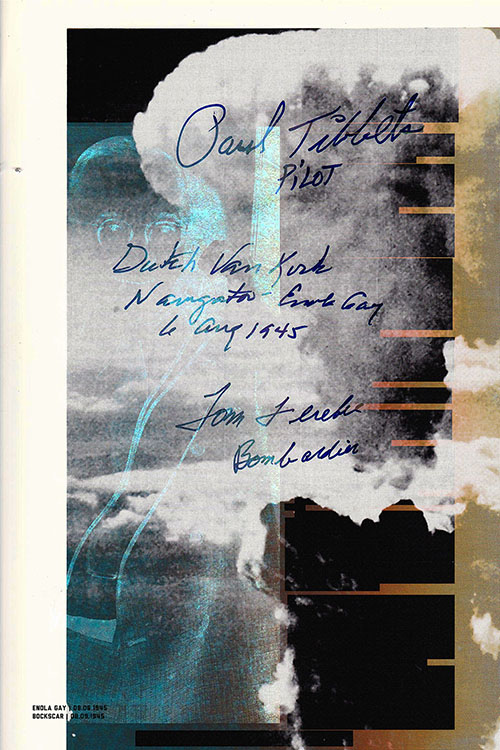 Paul Tibbets
PILOT
Dutch Van Kirk
Navigator - Enola Gay
6 Aug 1945
Tom Ferebee
Bombardier
ENOLA GAY | 08.06.1945
BOCKSCAR | 08.09.1945